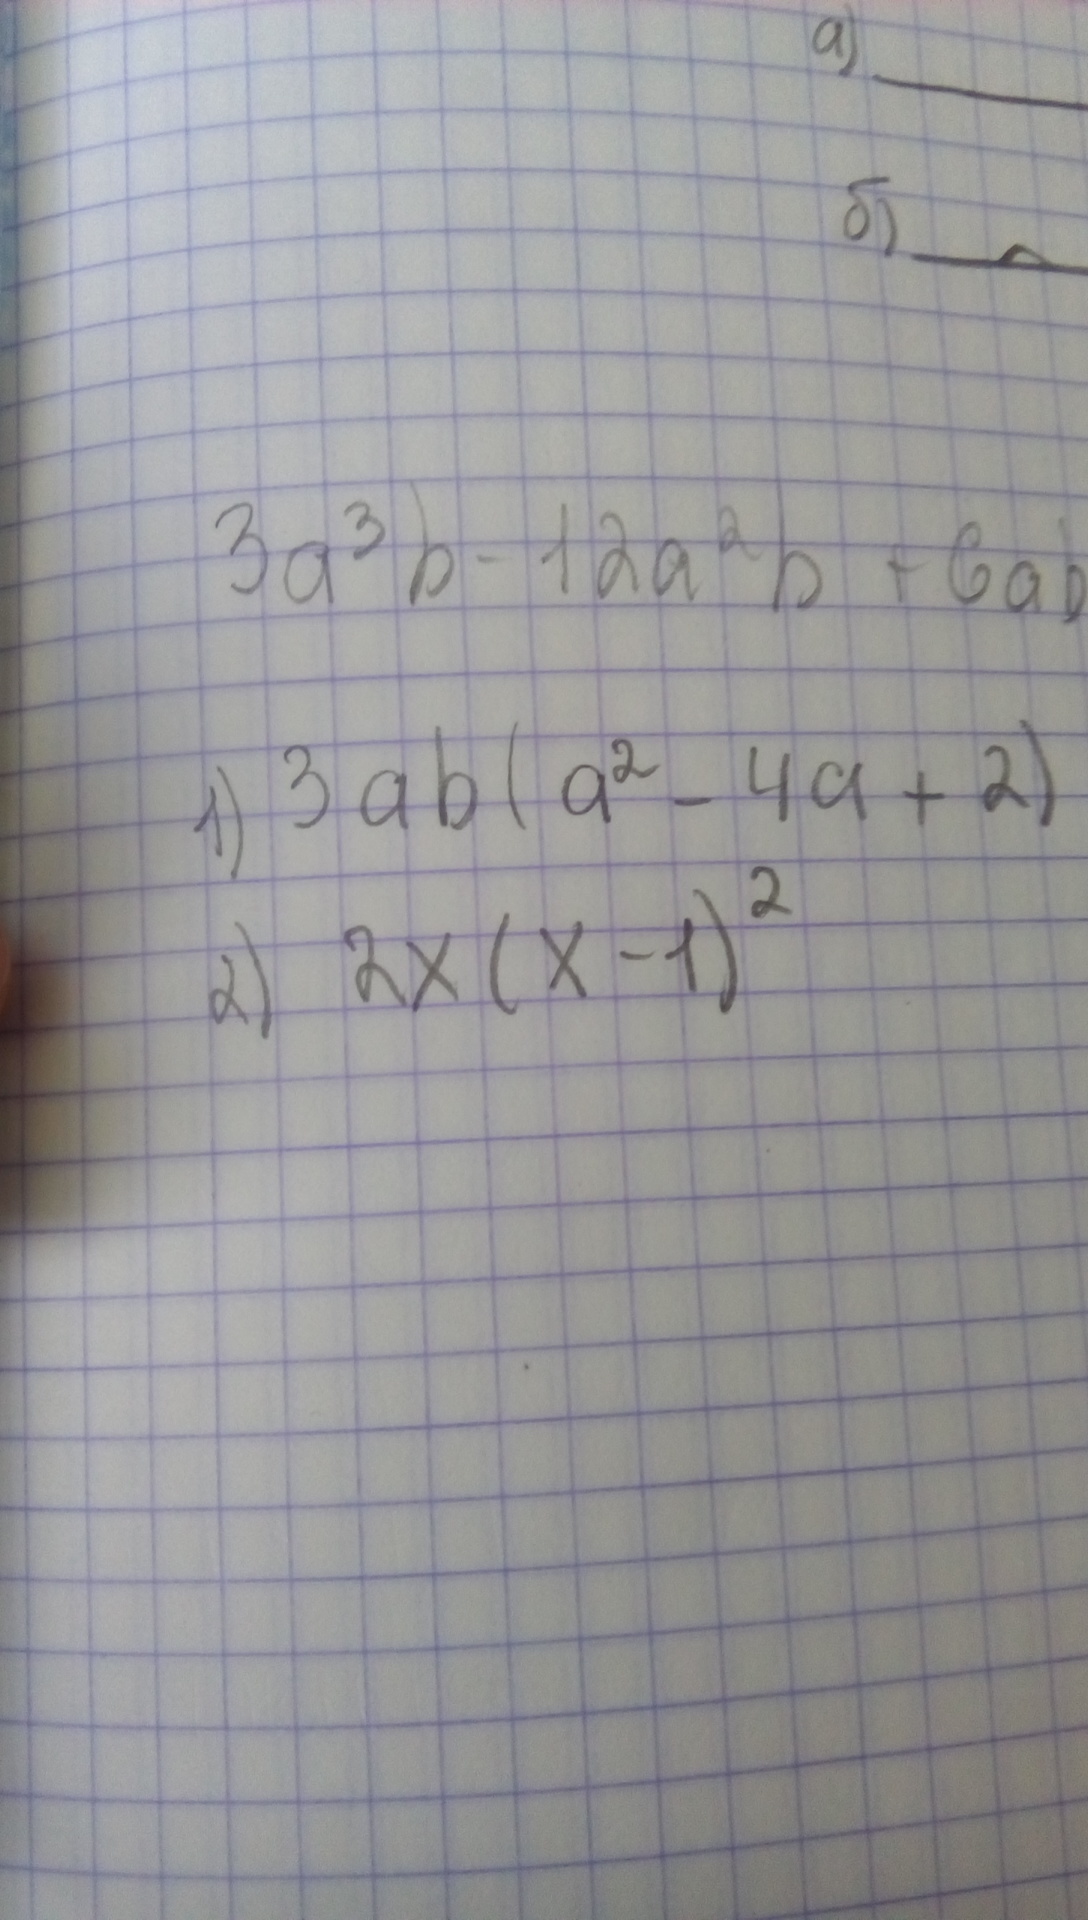 а)
б)
3a³b - 12a²b + 6ab
1) 3ab(a² - 4a + 2)
2) 2x(x - 1)²